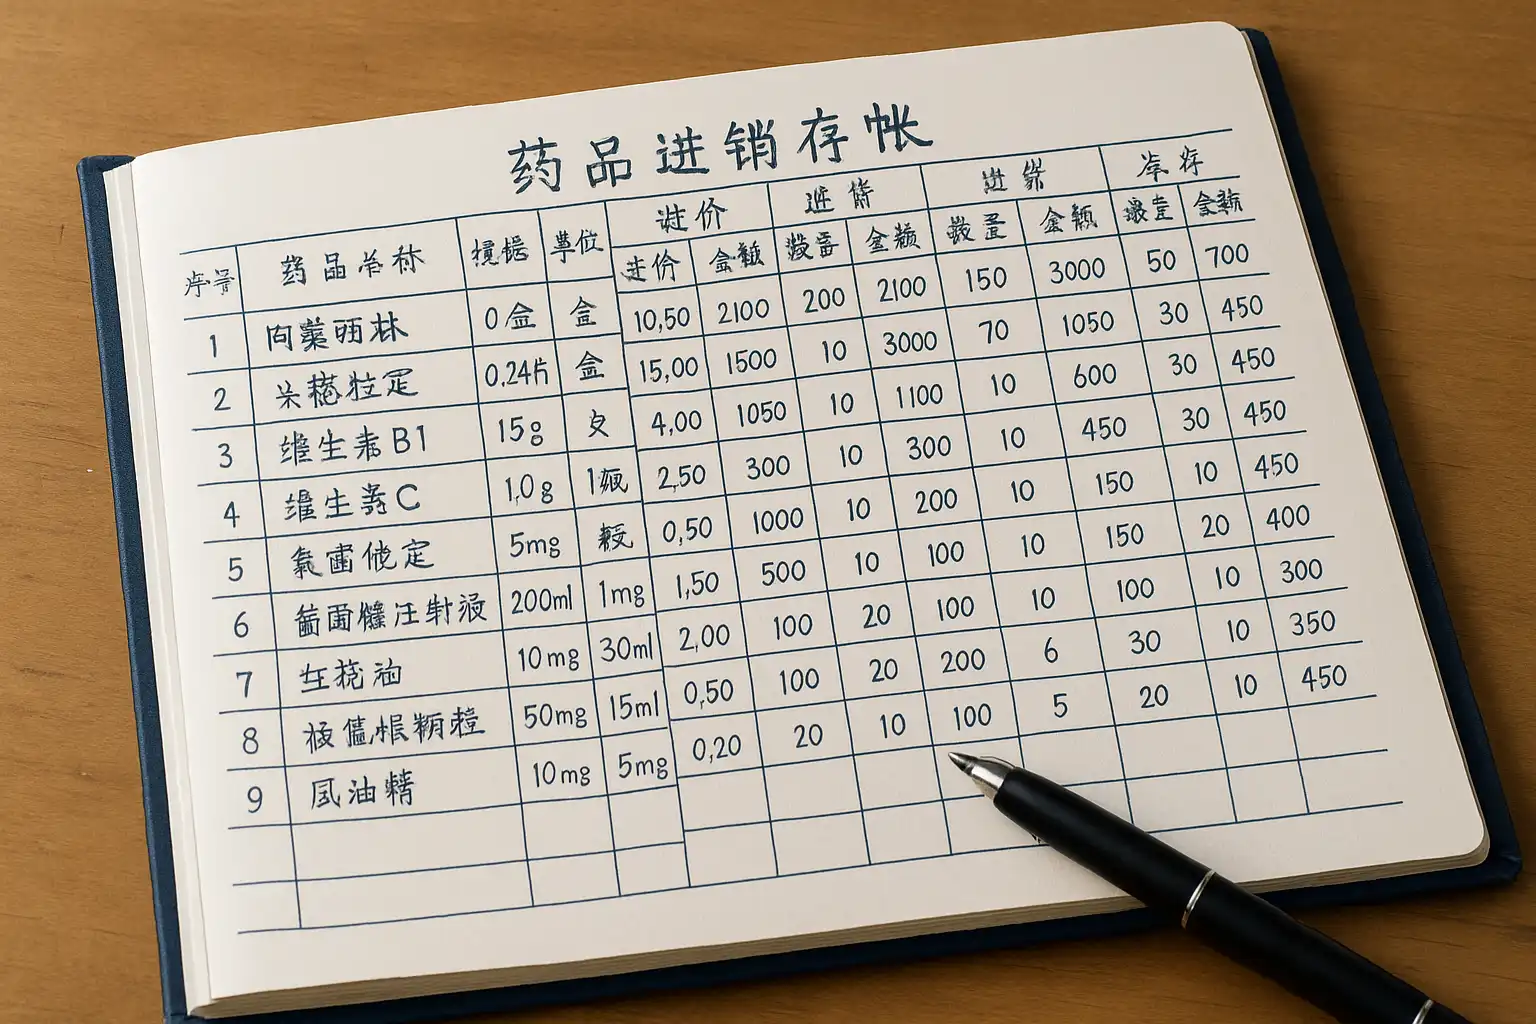 药品进销存帐
序号 药品名称 规格 单位 进价 进货 库存
进价 金额 数量 金额 数量 金额 数量 金额
1 0盒 盒 10,50 2100 200 2100 150 3000 50 700
2 0.24片 盒 15,00 1500 10 3000 70 1050 30 450
3 维生素B1 15g 4,00 1050 10 1100 10 600 30 450
4 维生素C 1,0g 2,50 300 10 300 10 450 30 450
5 5mg 0,50 1000 10 200 10 150 10 450
6 200ml 1mg 1,50 500 10 100 10 150 20 400
7 10mg 30ml 2,00 100 20 100 10 100 10 300
8 50mg 15ml 0,50 100 20 200 6 30 10 350
9 风油精 10mg 5mg 0,20 20 10 100 5 20 10 450